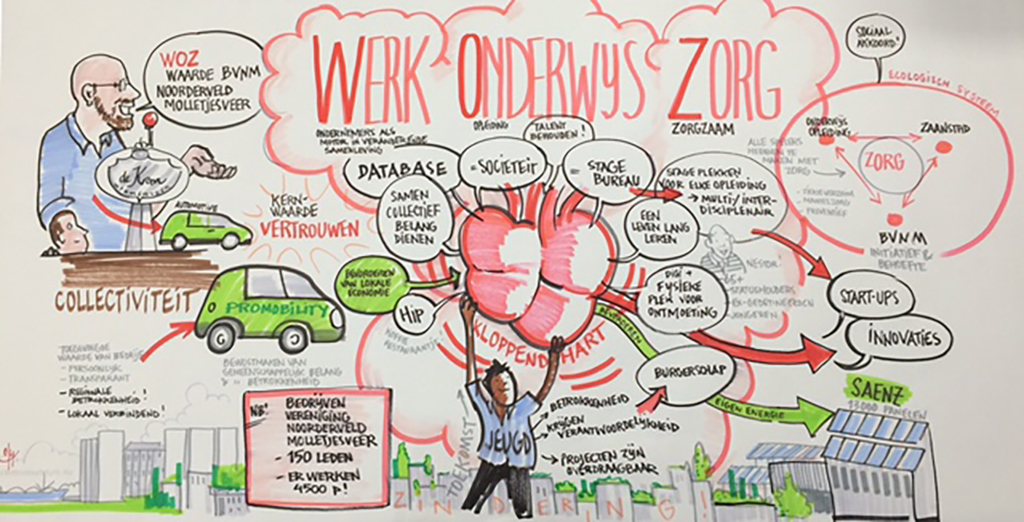 WERK ONDERWIJS ZORG
WOZ
WAARDE BVNM
NOORDERVELD
MOLLETJESVEER
de Kom
AUTOMOTIVE
COLLECTIVITEIT
KERN-
WAARDE
VERTROUWEN
PROMOBILITY
ONDERNEMERS ALS
MOTOR IN VERANDERENDE
SAMENLEVING
OPLEIDING
TALENT
BEHOUDEN!
ZORGZAAM
DATABASE
= SOCIËTEIT
= STAGE
BUREAU
SAMEN
COLLECTIEF
BELANG
DIENEN
BEVORDEREN
VAN LOKALE
ECONOMIE
HIP
KOFFIE
RESTAURANTJE!
STAGE PLEKKEN
VOOR ELKE OPLEIDING
→ MULTI/INTER-
DISCIPLINAIR
EEN
LEVEN LANG
LEREN
NESTOR!
65+
DIGI +
FYSIEKE
PLEK VOOR
ONTMOETING
KLOPPEND HART
BURGERSCHAP
EIGEN ENERGIE
START-UPS
INNOVATIES
SAENZ
13000 PANELEN
SOCIAAL
AKKOORD!
ECOLOGISCH SYSTEEM
ONDERWIJS
OPLEIDING
ZAANSTAD
ZORG
BVNM
INITIATIEF &
BEHOEFTE
ALLE SPELERS
HEBBEN TE
MAKEN MET
ZORG
- MANTELZORG
TOEKOMST
JEUGD
BETROKKENHEID
KRIJGEN
VERANTWOORDELIJKHEID
PROJECTEN ZIJN
OVERDRAAGBAAR
TOEGEVOEGDE
WAARDE VAN BEDRIJF
- PERSOONLIJK
- TRANSPARANT
- REGIONALE
BETROKKENHEID!
- LOKAAL VERBINDEND!
BEWUSTMAKEN VAN
GEMEENSCHAPPELIJK BELANG
& BETROKKENHEID
NB!
BEDRIJVEN
VERENIGING
NOORDERVELD
MOLLETJESVEER
- 150 LEDEN
- ER WERKEN
4500 p!
ZINDERING!